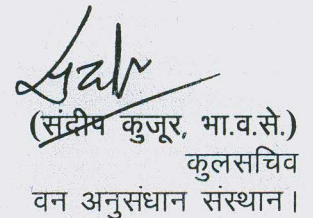 (संदीप कुजूर, भा.व.से.)
कुलसचिव
वन अनुसंधान संस्थान।